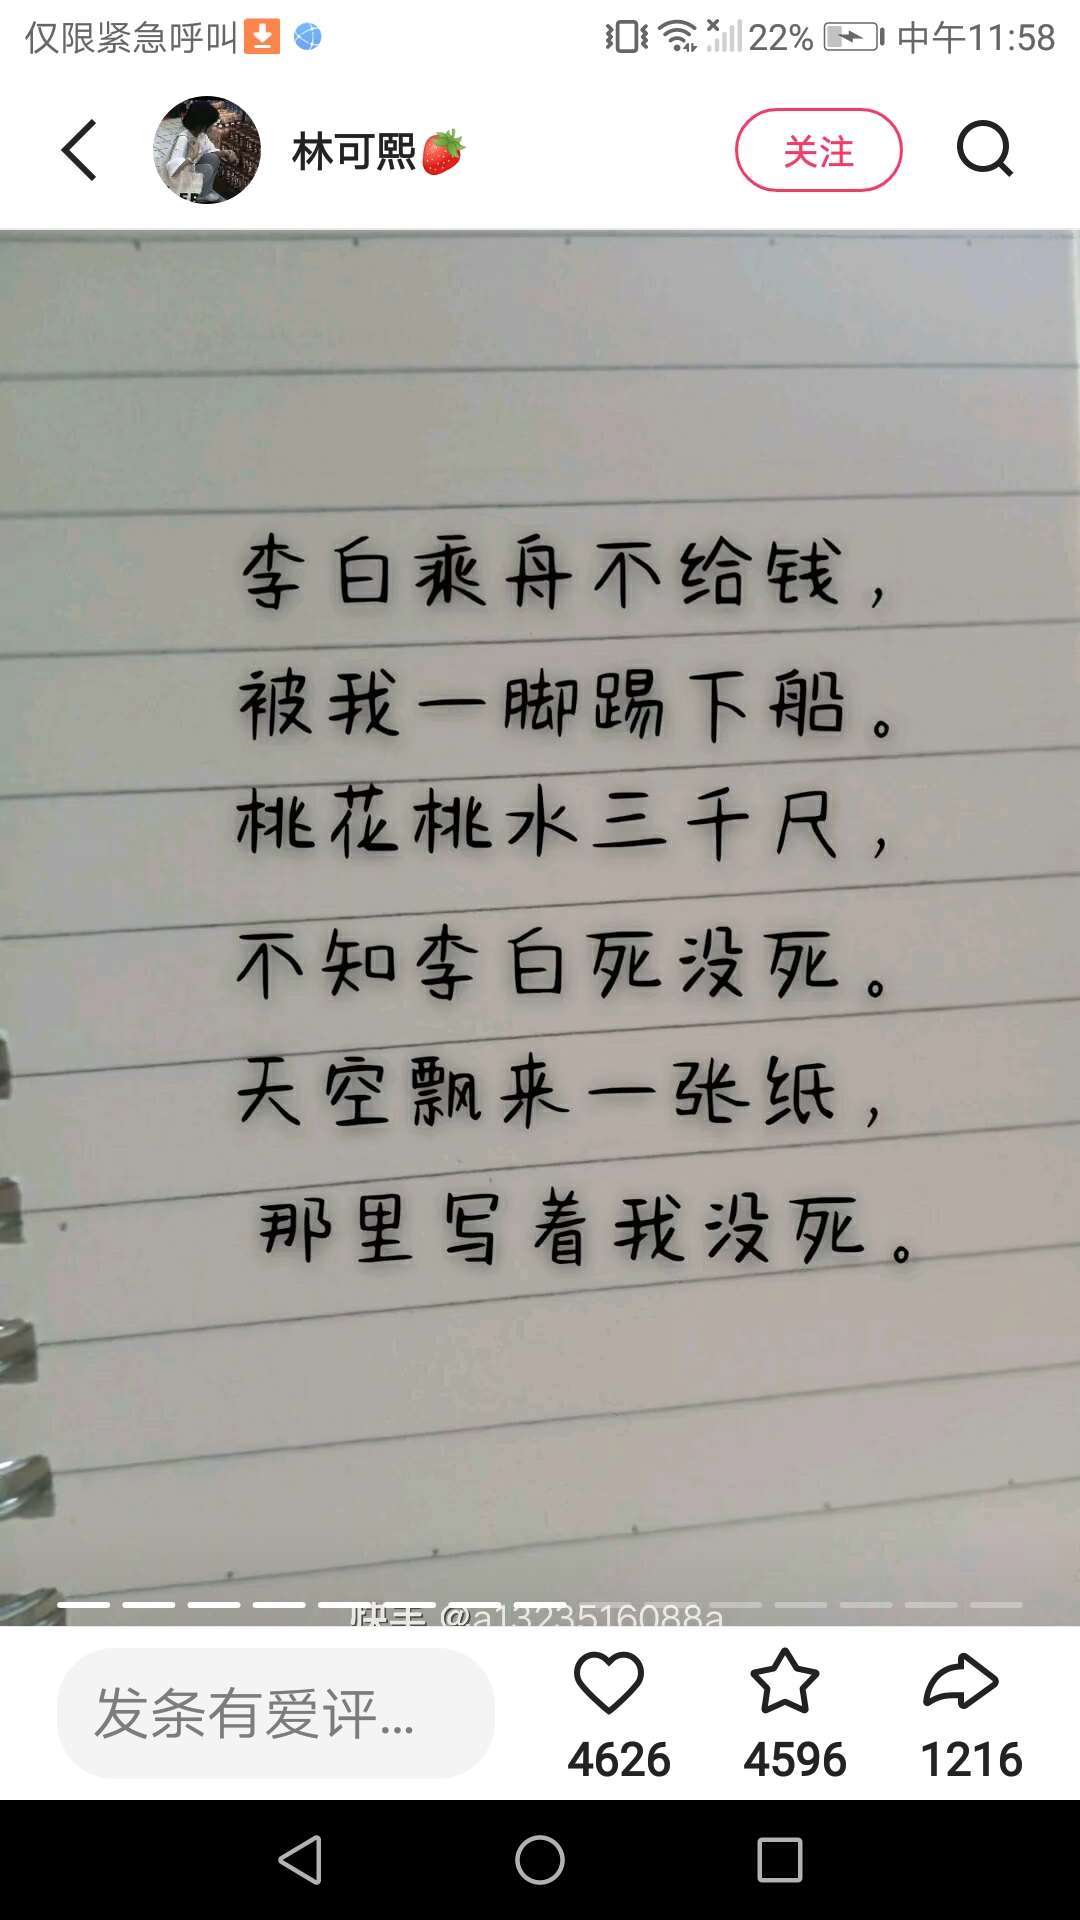 仅限紧急呼叫
22% 中午11:58
林可熙
关注
李白乘舟不给钱，
被我一脚踢下船。
桃花桃水三千尺，
不知李白死没死。
天空飘来一张纸，
那里写着我没死。
快手 @a1323516088a
发条有爱评...
4626 4596 1216